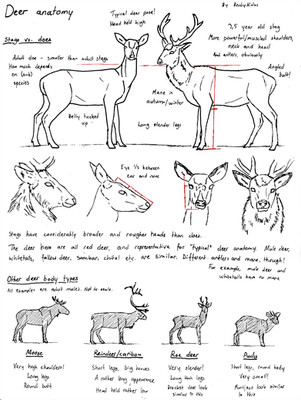 Deer anatomy
By
Typical deer pose!
Head held high
Stags vs. does
7,5 year old stag
More powerful/muscled shoulders,
neck and head
And antlers, obviously
Adult doe - smaller than adult stags
How much depends
on (sub)
species
Angled
butt!
Mane in
autumn/winter
Belly tucked
up
Long slender legs
Eye ½ between
ear and nose
Stags have considerably broader and rougher heads than does.
The deer here are all red deer, and representative for "typical" deer anatomy. Mule deer,
whitetails, fallow deer, sambar, chital etc. are similar. Different antlers and manes, though!
For example, mule deer and
whitetails have no mane
Other deer body types
All examples are adult males. Not to scale.
Moose
Reindeer/caribou
Roe deer
Pudu
Very high shoulders!
Long legs
Round butt
Short legs, big hooves
A rather long appearance
Head held rather low
Very slender!
Long thin legs
Brocket deer look
similar to this
Short legs, round body
Very small!
Muntjacs look similar
to this